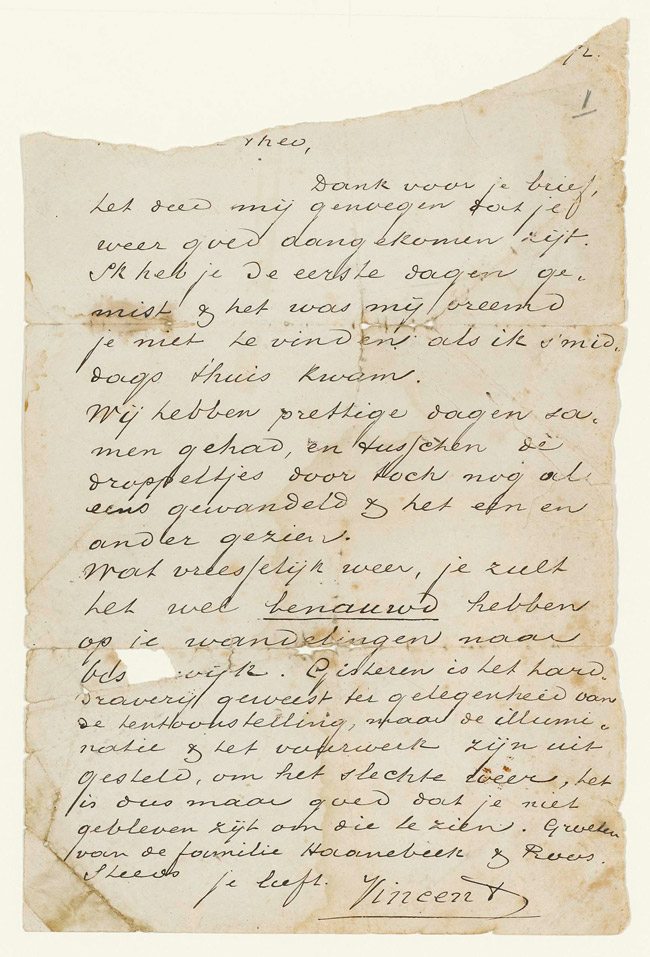 72.
1
Theo,
Dank voor je brief,
het deed mij genoegen dat je
weer goed aangekomen zijt.
Ik heb je de eerste dagen ge-
mist & het was mij vreemd
je niet te vinden als ik s'mid-
dags t'huis kwam.
Wij hebben prettige dagen sa-
men gehad, en tusschen de
droppeltjes door toch nog al
eens gewandeld & het een en
ander gezien.
Wat vreesselijk weer, je zult
het wel benauwd hebben
op je wandelingen naar
wijk. Gisteren is het hard-
draverij geweest ter gelegenheid van
de tentoonstelling, maar de illumi-
natie & het vuurwerk zijn uit
gesteld, om het slechte weer, het
is dus maar goed dat je niet
gebleven zijt om die te zien. Groeten
van de familie Haanebeek & Roos.
Steeds
je liefh. Vincent